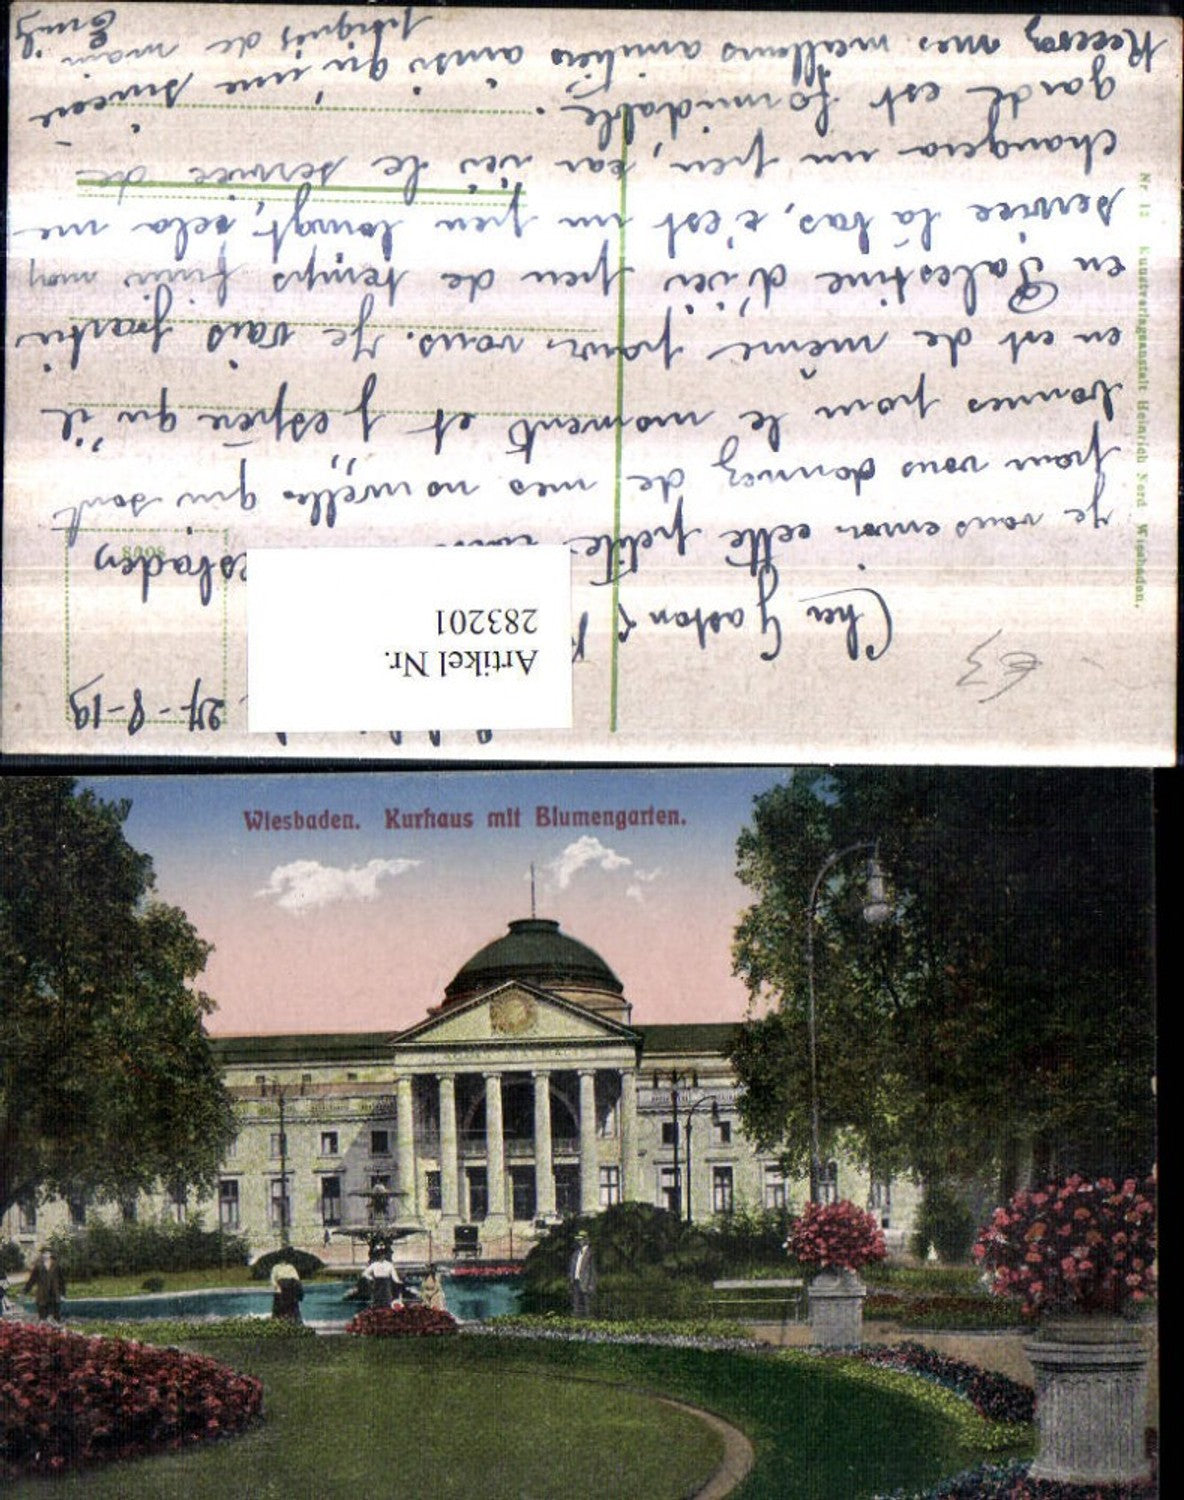 27-8-19
Artikel Nr.
283201
Cher Gaston
Je vous envoi cette petite
pour vous donnez de mes nouvelles qui sont
bonnes pour le moment et j'espère qu'il
en est de même pour vous. Je vais partir
en Palestine d'ici peu de temps finir mon
service là bas, c'est un peu lourd, cela me
changera un peu, car ici le service de
garde est formidable.
Recevez mes meilleurs amitiés ainsi qu'une sincère
poignés de main
Emile
8008
Nr. 12 Kunstverlagsanstalt Heinrich Nord Wiesbaden.
€3
Wiesbaden. Kurhaus mit Blumengarten.